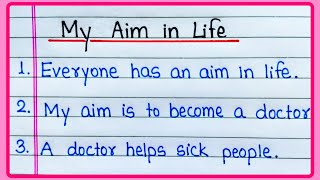 My Aim in Life
1. Everyone has an aim In life.
2. My aim is to become a doctor
3. A doctor helps sick people.